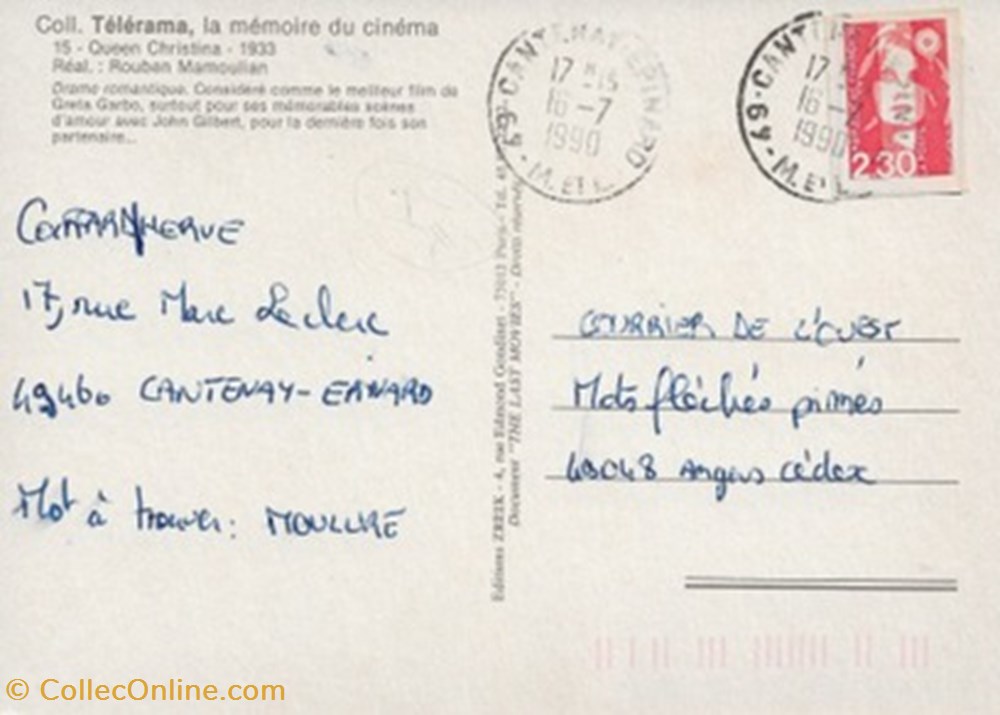 Coll. Télérama, la mémoire du cinéma
15 - Queen Christina - 1933
Réal. : Rouban Mamoulian
Drame romantique. Considéré comme le meilleur film de
Greta Garbo, surtout pour ses mémorables scènes
d'amour avec John Gilbert, pour la dernière fois son
partenaire...
HERVE
17, rue Marc Leclerc
49460 CANTENAY-EPINARD
Mot à trouver: MOULURE
Editions ZREIK - 4, rue Edmond Gondinet - 75013 Paris - Tél.
Document "THE LAST MOVIES" - Droits réservés
49-CANTENAY-EPINARD
17 H 15
16-7
1990
M. ET L.
49-CANT
17
16-
1990
M. ET
2,30
COURRIER DE L'OUEST
Mots fléchés primés
49048 Angers Cédex
© CollecOnline.com